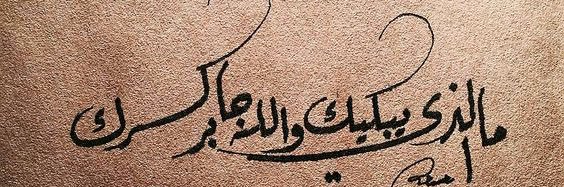 مالذي يبكيك والله جابر كسرك